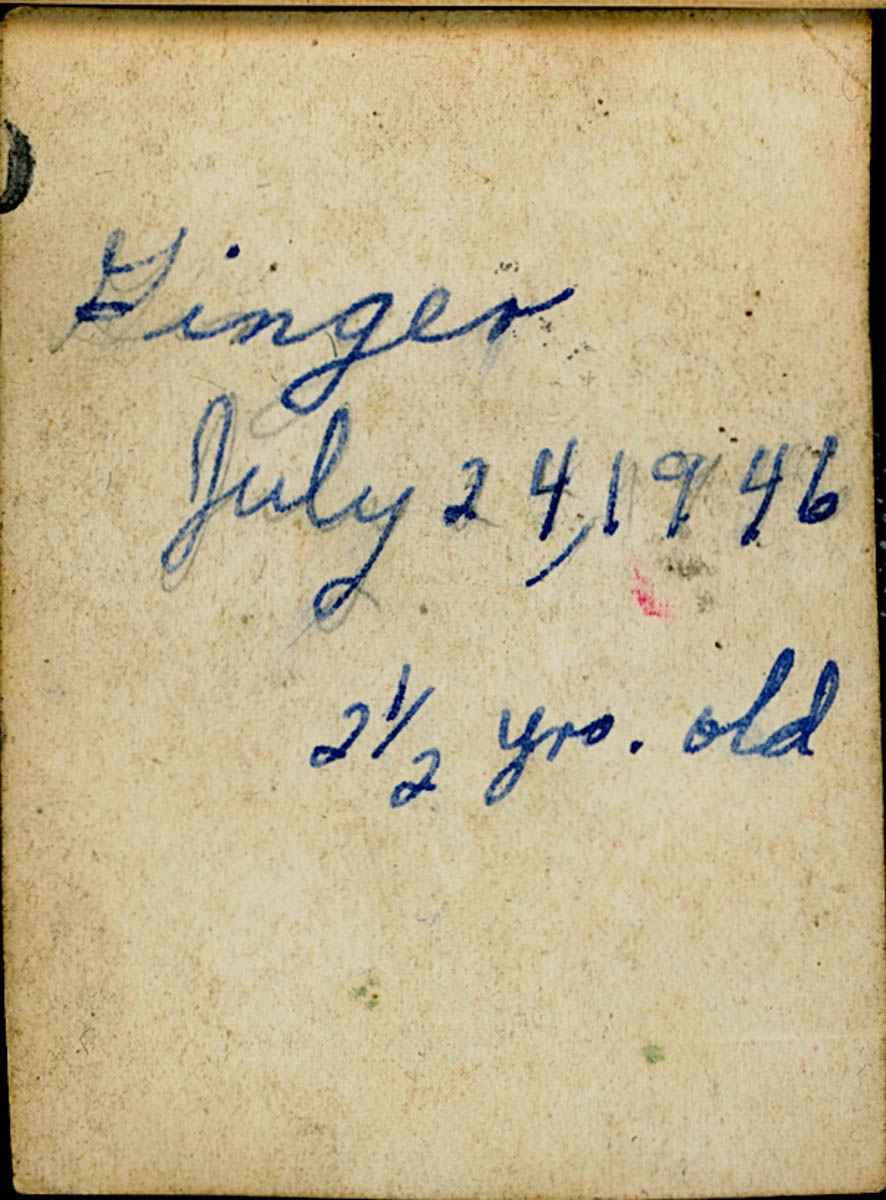 Ginger
July 24, 1946
2 1/2 yrs. old